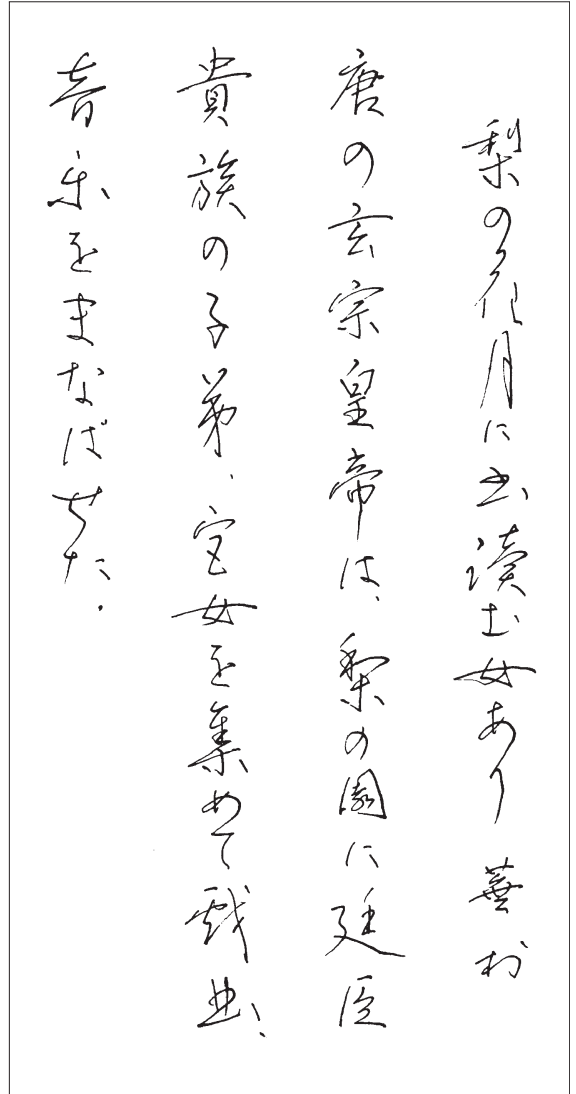 梨の花月に書読む女あり 蕪村
唐の玄宗皇帝は、梨の園に廷臣
貴族の子弟、宮女を集めて戯曲、
音楽をまなばせた。